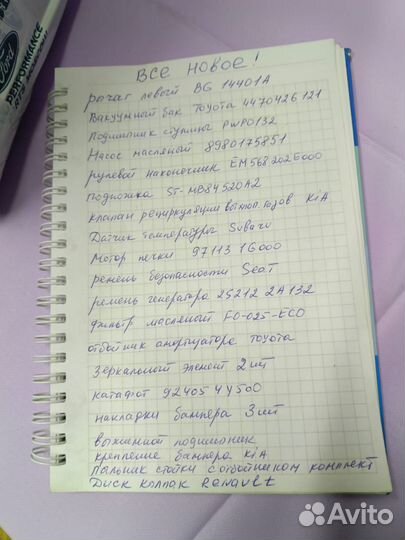 Ford
PERFORMANCE
ВСЕ НОВОЕ!
рычаг левый BG 14401A
Вакуумный бак Toyota 4470426121
Подшипник ступицы PWP0132
Насос масляный 8980175851
рулевой наконечник EM5682026000
подножка ST-MB84520A2
клапан рециркуляции выхлоп.газов KiA
Датчик температуры Subaru
Мотор печки 97113 1G000
ремень безопасности Seat
ремень генератора 25212 2A132
фильтр масляной FO-025-ECO
отбойник амортизатора Toyota
Зеркальный элемент 2 шт
катафот 92405 4Y500
накладки бампера 3 шт
выжимной подшипник
крепление бампера KiA
Пыльник стойки с отбойником комплект
Диск колпак Renault
Avito